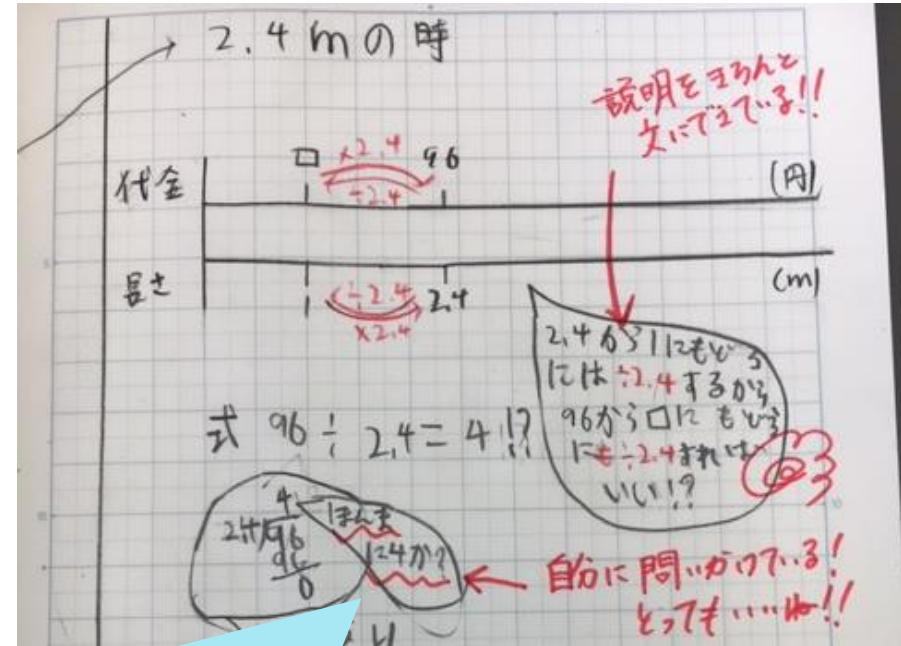 2.4mの時
説明をきちんと
文にできている!!
□ ×2.4 96
÷2.4
代金 (円)
長さ (m)
1 ÷2.4 2.4
×2.4
2.4から1にもどる
には÷2.4するから
96から□にもどる
にも÷2.4すれば
いい!?
式 96÷2.4=4!?
4
2.4)96
96
0
ほんま
に4か?
自分に問いかけている!
とってもいいね!!